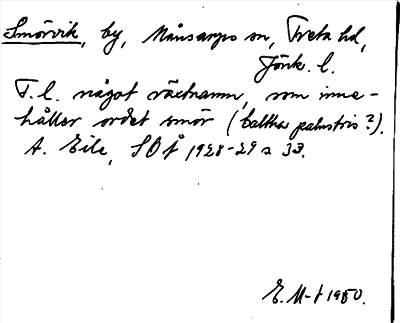 Smörvik, by, Månsarps sn, Tveta hd,
Jönk. l.
T. l. något växtnamn, som inne-
håller ordet smör (Caltha palustris?).
A. Eile, SOÅ 1928-29 s 33.
E. M-t 1980.